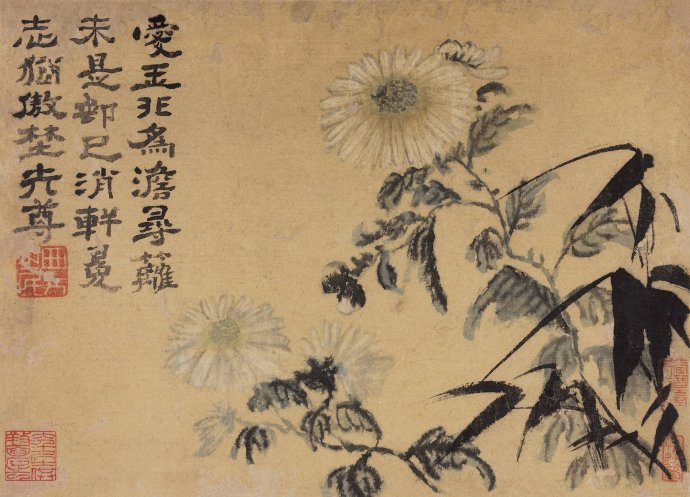 愛玉非爲澹尋籬
未是邨已消軒冕
志猶傲埜先尊